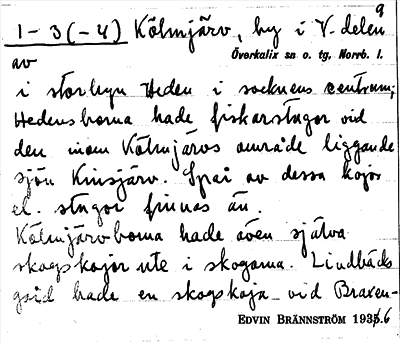 9
1-3(-4) Kölmjärv, by i V. delen
Överkalix sn o. tg. Norrb. l.
av
i storbyn Heden i socknens centrum;
Hedensborna hade fiskarstugor vid
den inom Kölmjärvs område liggande
sjön Kinsjärv. Spår av dessa kojor
el. stugor finnas än.
Kölmjärvborna hade även själva
skogskojor ute i skogarna. Lindbäcks
gård hade en skogskoja vid Braxen-
EDVIN BRÄNNSTRÖM 1936.6